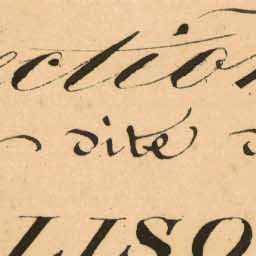 ection
dite
LISO